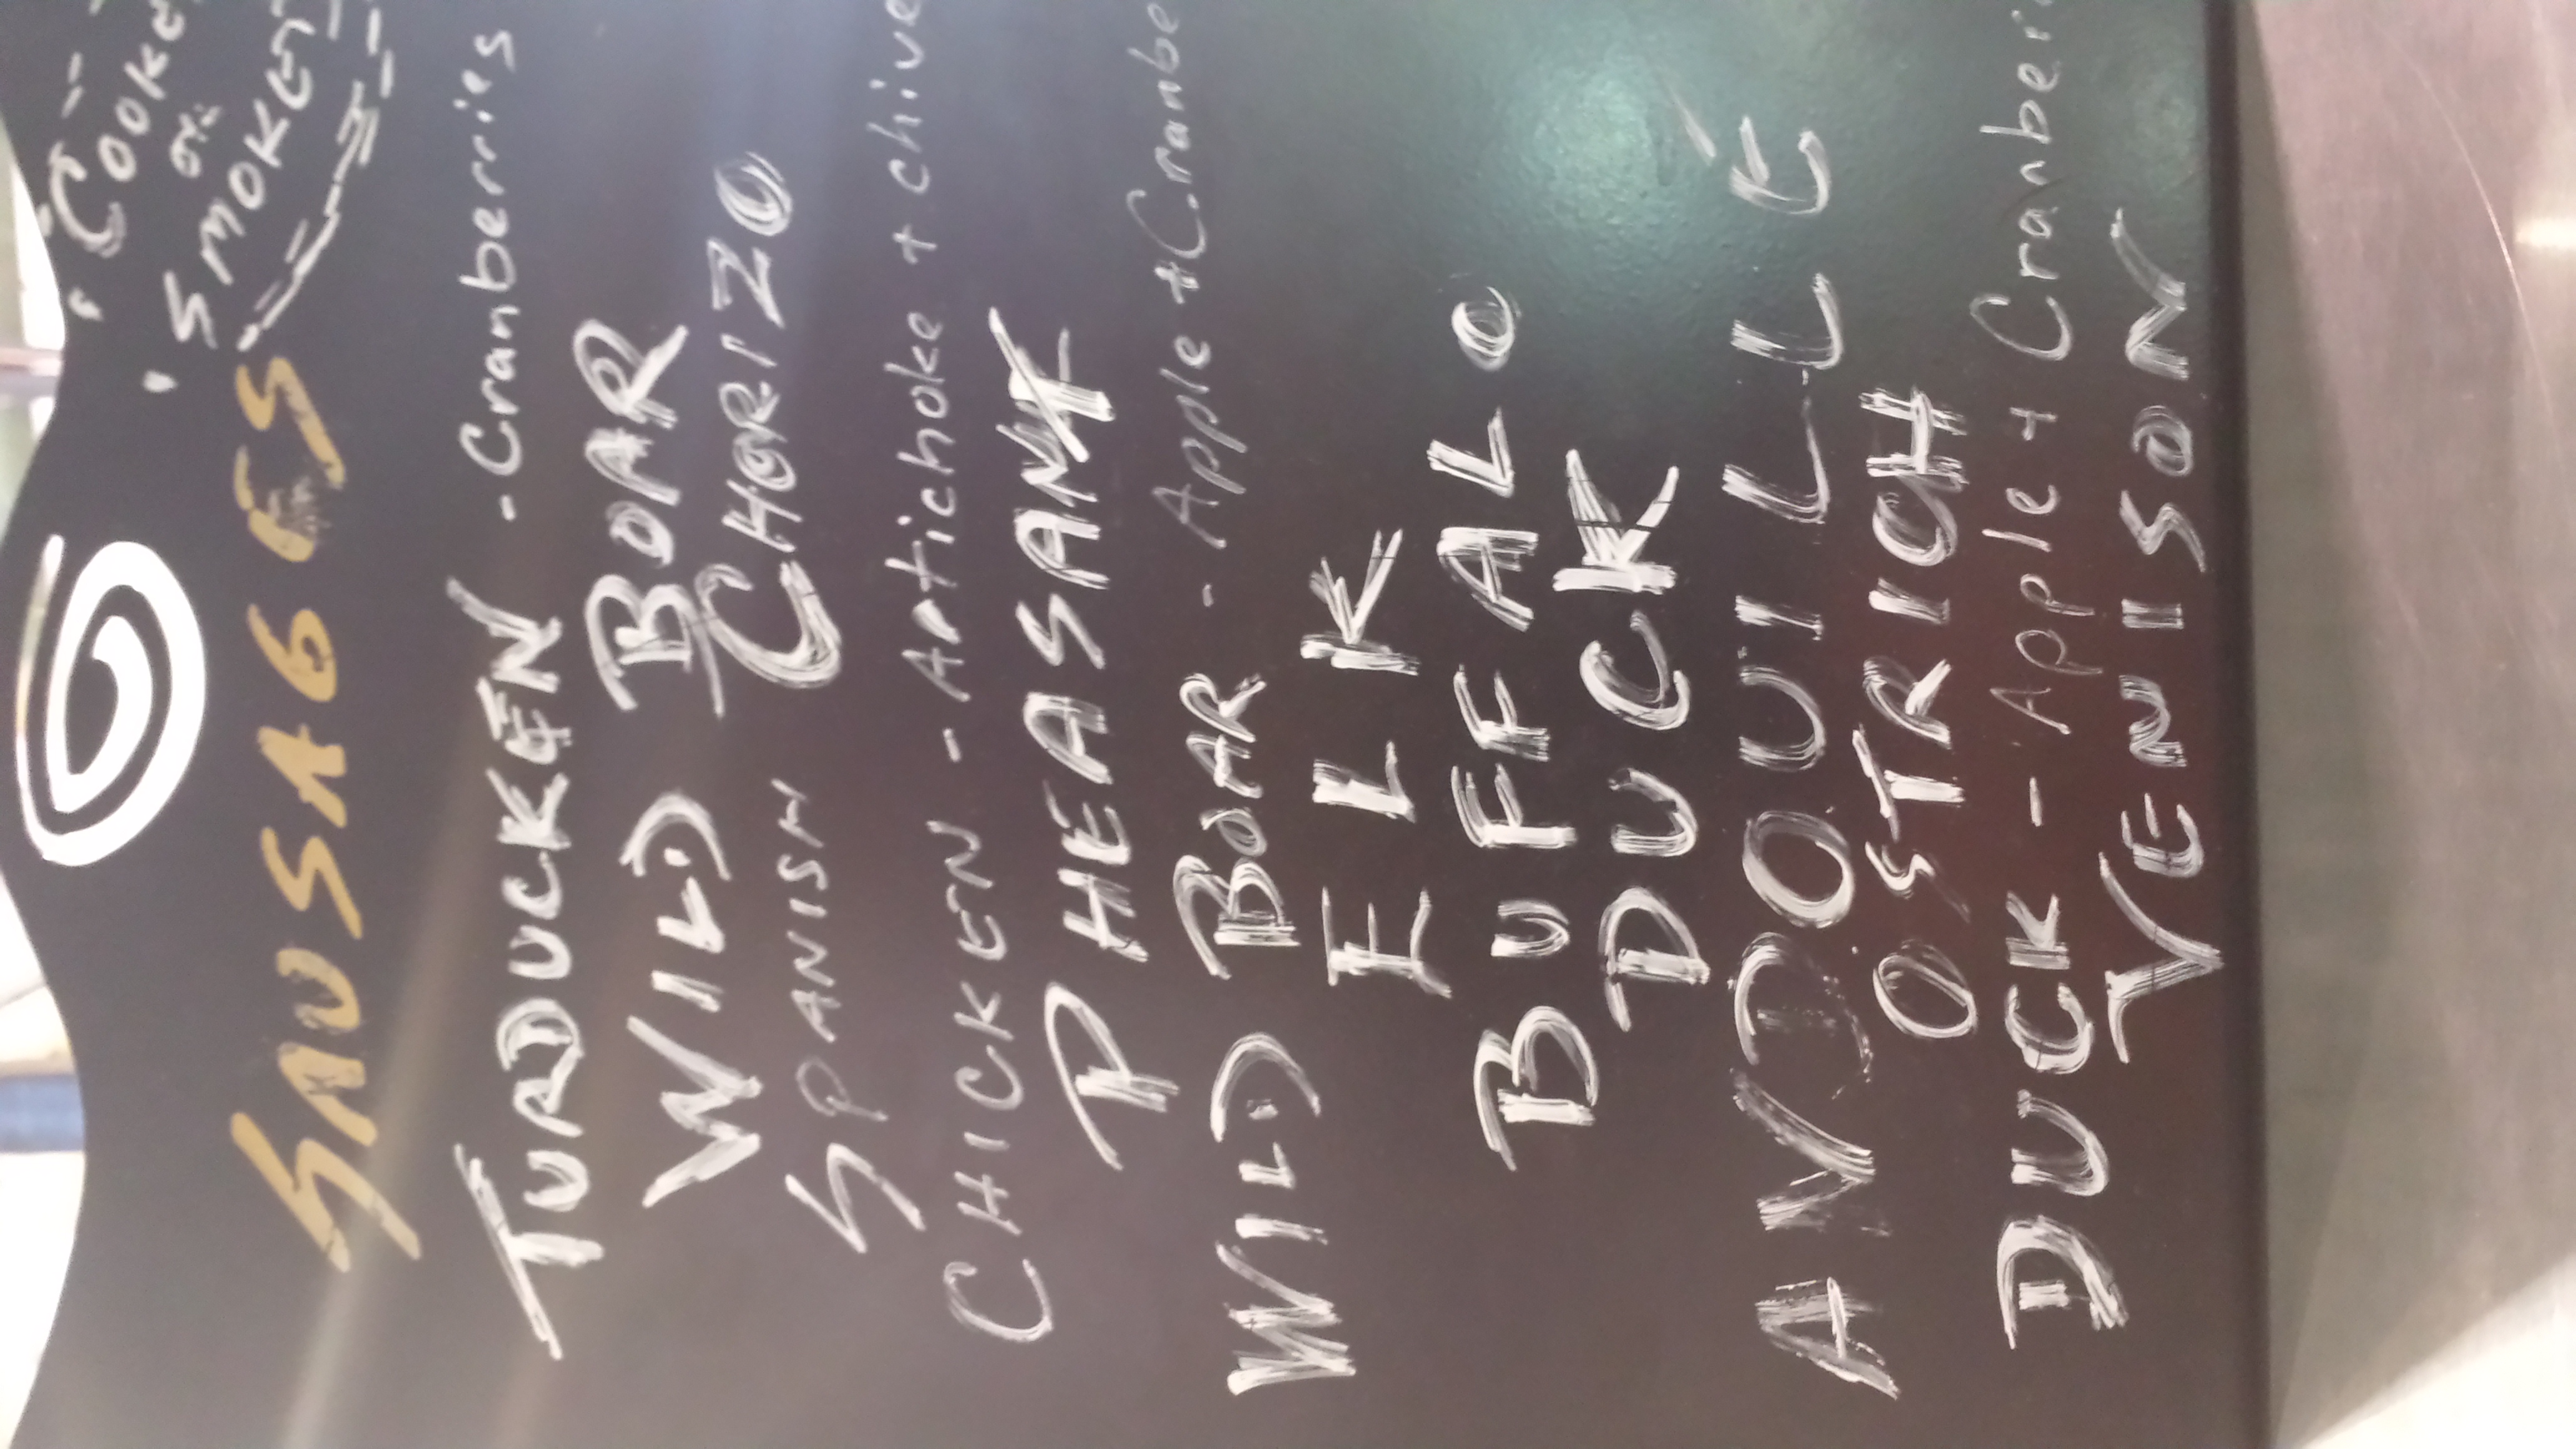 COOKED
or
SMOKED
SAUSAGES
TURDUCKEN - Cranberries
WILD BOAR
SPANISH CHORIZO
CHICKEN - Artichoke + chive
PHEASANT
WILD BOAR - Apple + Cranbe
ELK
BUFFALO
DUCK
ANDOUILLE
OSTRICH
DUCK - Apple + Cranberr
VENISON